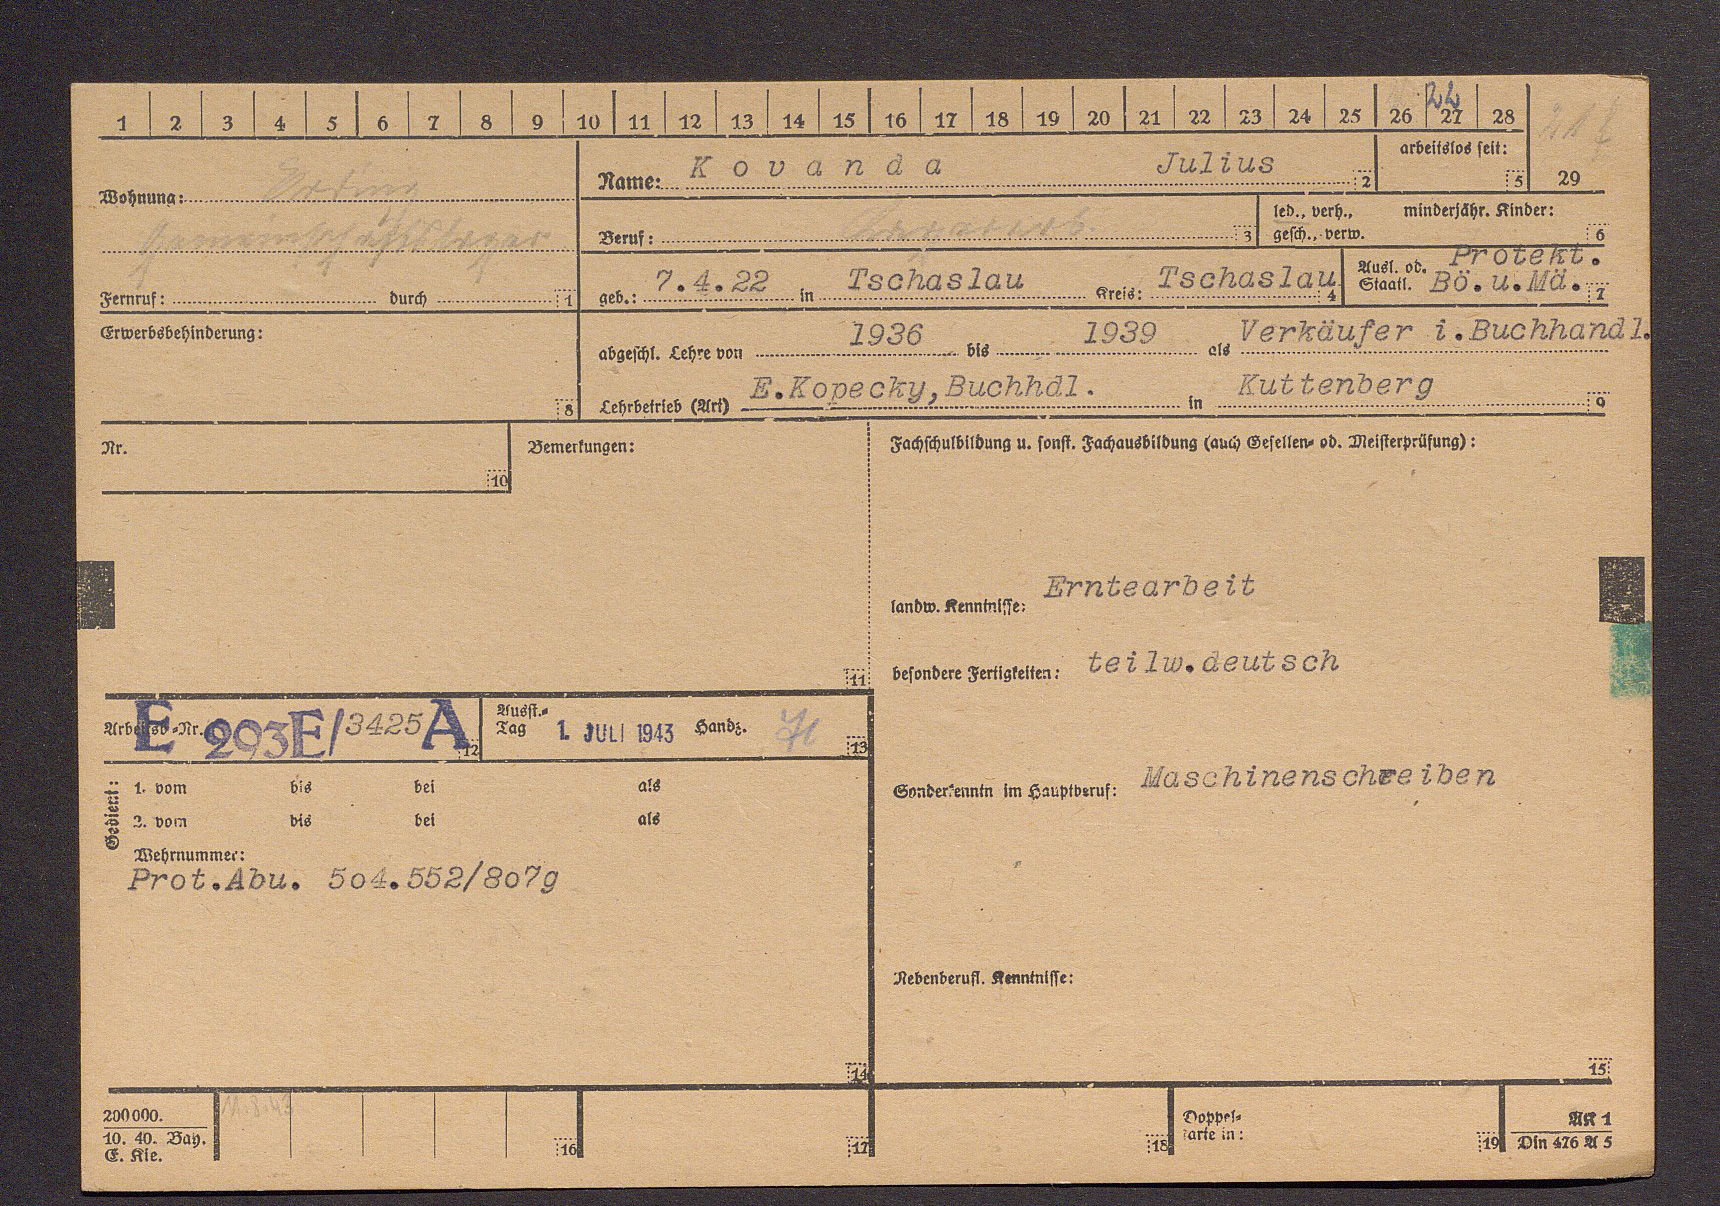 1 2 3 4 5 6 7 8 9 10 11 12 13 14 15 16 17 18 19 20 21 22 23 24 25 26 27 28 29
22
Wohnung: Erding
Gemeinschaftslager
Fernruf: durch 1
Name: Kovanda Julius 2
arbeitslos seit: 5
Beruf: 3
led., verh., minderjähr. Kinder:
gesch., verw. 6
geb.: 7.4.22 in Tschaslau Kreis: Tschaslau 4
Ausl. od. Protekt.
Staatl. Bö.u.Mä. 7
Erwerbsbehinderung:
8
abgeschl. Lehre von 1936 bis 1939 als Verkäufer i.Buchhandl.
Lehrbetrieb (Art) E.Kopecky,Buchhdl. in Kuttenberg 9
Nr.
10
Bemerkungen:
11
Fachschulbildung u. sonst. Fachausbildung (auch Gesellen- od. Meisterprüfung):
landw. Kenntnisse: Erntearbeit
besondere Fertigkeiten: teilw.deutsch
Sonderkenntn im Hauptberuf: Maschinenschreiben
Nebenberufl. Kenntnisse:
15
Arbeitsb-Nr. E 293E/3425 A 12
Ausst.-
Tag 1. JULI 1943 Handz. 13
Gedient:
1. vom bis bei als
2. vom bis bei als
Wehrnummer:
Prot.Abu. 5o4.552/8o7g
14
200000.
10. 40. Bay.
E. Kle.
11.8.43
16
17
18
Doppel-
karte in:
19
AK 1
Din 476 A 5